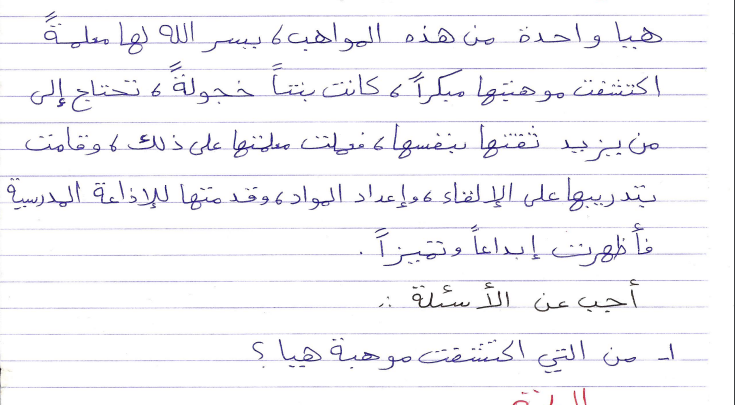 هيا واحدة من هذه المواهب، يسر الله لها معلمةً
اكتشفت موهبتها مبكراً، كانت بنتاً خجولةً، تحتاج إلى
من يزيد ثقتها بنفسها، فعملت معلمتها على ذلك، وقامت
بتدريبها على الإلقاء، وإعداد المواد، وقدمتها للإذاعة المدرسية
فأظهرت إبداعاً وتميزاً.
أجب عن الأسئلة :.
١- من التي اكتشفت موهبة هيا؟